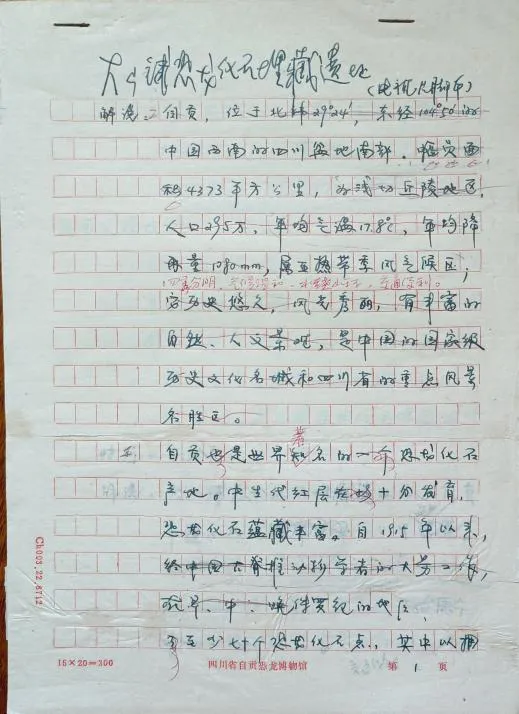 大山铺恐龙化石埋藏遗址
(电视片脚本)
解说: 自贡,位于北纬29°24′,东经104°50′的
中国西南的四川盆地南部。幅员面
积4373平方公里,为浅切丘陵地区,
人口295万,年均气温17.8℃,年均降
雨量1080mm,属亚热带季风气候区;
四季分明,气候温和,交通便利。
它历史悠久,风光秀丽,有丰富的
自然、人文景观,是中国的国家级
历史文化名城和四川省的重点风景
名胜区。
自贡也是世界知著名的一个恐龙化石
产地。中生代红层在境十分发育,
恐龙化石蕴藏丰富。自1915年以来,
经中国古脊椎动物学者的大劳工作,
在早、中、晚侏罗纪的地层
至少七十个恐龙化石点,其中以
Ch003.22.8712
15×20=300 四川省自贡恐龙博物馆 第 1 页